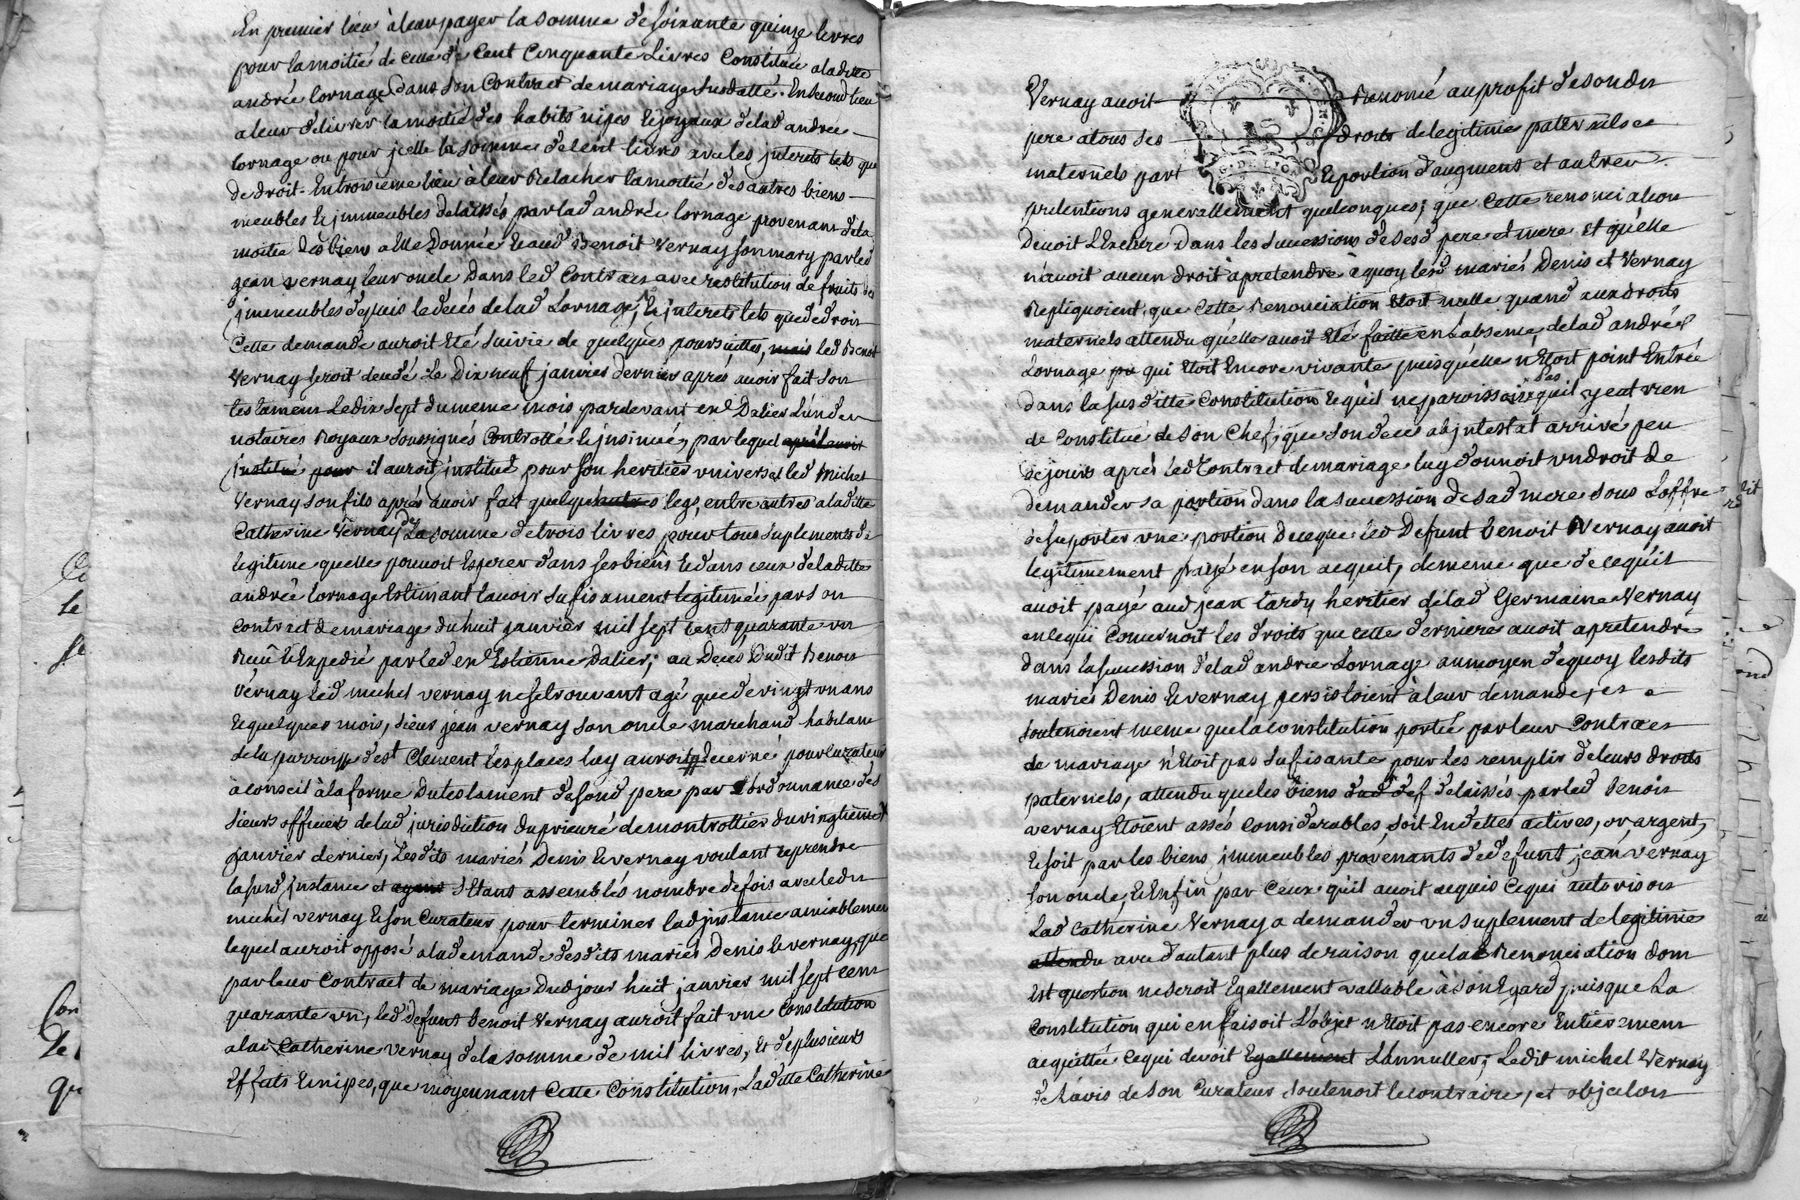 En premier lieu à leur payer la somme de soixante quinze livres
pour la moitié de celle de Cent Cinquante Livres Constituée a laditte
andrée Lornage dans son Contract de mariage susdatté. En second lieu
a leur délivrer la moitié des habits nipes et joyaux de lad andrée
Lornage ou pour jcelle la somme de cent livres avec les jnterets tels que
de droit. En troisieme lieu à leur Relacher la moitié des autres biens
meubles et jmmeubles delaissés par lad andrée Lornage provenant de la
moitié des biens a elle Donnée et aud Benoit Vernay son mary par led
jean vernay leur oncle dans led Contract avec restitution de fruits des
jmmeubles depuis le decés de lad Lornage, et jnterets tels que de droit
Cette demande auroit été suivie de quelques poursuittes, mais led Benoit
Vernay seroit decedé le Dix neuf janvier dernier aprés avoir fait son
testament le dix sept du meme mois pardevant en.e Dalier L'un des
notaires Royaux soussignés Controllé et jnsinué, par lequel aprés avoir
jnstitué pour il auroit jnstitué pour son heritier universel led Michel
Vernay son fils aprés avoir fait quelques autres legs, entre autres a laditte
Catherine Vernay De La somme de trois livres pour tous suplements de
legitime quelle pouvoit Esperer dans ses biens et dans ceux de laditte
andrée Lornage Estimant l'avoir sufisament legitimée par son
contract de mariage du huit janvier mil sept cent quarante un
Receu et Expedié par led en.e Estienne Dalier; au Decés Dudit Benoit
Vernay led michel vernay ne se trouvant agé que de vingt un ans
et quelques mois, sieur jean vernay son oncle marchand habitant
de la parroisse de st Clement les places luy auroit été decerné pour curateur
à conseil à la forme du testament de son d pere par L'ordonnance des
sieurs officiers de lad jurisdiction du prieuré de montrottier du vingtieme
janvier dernier, Lesdits mariés Denis et vernay voulant reprendre
la susd jnstance et ayant s'etans assemblés nombre de fois avec ledit
michel vernay et son Curateur pour terminer lad jnstance amiablement
lequel auroit opposé a la demande desdits mariés Denis et vernay, que
par leur Contract de mariage Dud jour huit janvier mil sept cent
quarante un, led defunt Benoit Vernay auroit fait une Constitution
a lad Catherine Vernay de la somme de mil livres, Et de plusieurs
Effets et nipes, que moyennant Cette Constitution, Laditte Catherine
Vernay avoit Renoncé au profit de son dit
pere a tous ses droits de legitime paternels et
maternels part et portion d'augment et autres
pretentions generallement quelconques; que Cette renonciation
Devoit L'Exclure Dans les successions de sesd pere et mere Et qu'elle
n'avoit aucun droit à pretendre à quoy lesd mariés Denis et Vernay
Repliquoient, que Cette Renonciation étoit nulle quand aux droits
maternels attendu qu'elle avoit été faitte en l'absence de lad andrée
Lornage qui Etoit Encore vivante puisquelle n'Etoit point Entrée
dans la susditte Constitution et qu'il ne paroissoit pas qu'il y eut rien
de Constitué de son Chef, que son decé ab jntestat arrivé peu
de jours aprés led Contract de mariage luy donnoit un droit de
demander sa portion dans la succession de sad mere sous L'offre
de suporter une portion De ce que led Defunt Benoit Vernay avoit
legitimement payé en son acquit, de meme que de ce qu'il
avoit payé aud jean tardy heritier de lad Germaine Vernay
en ce qui Concernoit les droits que cette derniere avoit a pretendre
dans la succession de lad andrée Lornage au moyen de quoy lesdits
mariés Denis et vernay persistoient à leur demande, et
soutenoient meme que la constitution portée par leur Contract
de mariage n'étoit pas sufisante pour les remplir de leurs droits
paternels, attendu que les biens delaissés par led Benoit
vernay Etoient assés Considerables, soit En dettes actives, or, argent,
et soit par les biens jmmeubles provenants de defunt jean vernay
son oncle, et Enfin par Ceux qu'il avoit acquis Ce qui autorisoit
Lad Catherine Vernay a demander un suplement de legitime
attendu avec d'autant plus de raison que la Renonciation dont
Est question ne seroit Egallement vallable à son Egard puisque La
Constitution qui en faisoit L'objet n'étoit pas encore Entierement
acquittée Ce qui devoit Egallement L'annuller; Ledit michel Vernay
de l'avis de son Curateur soutenoit le contraire, et objectoit